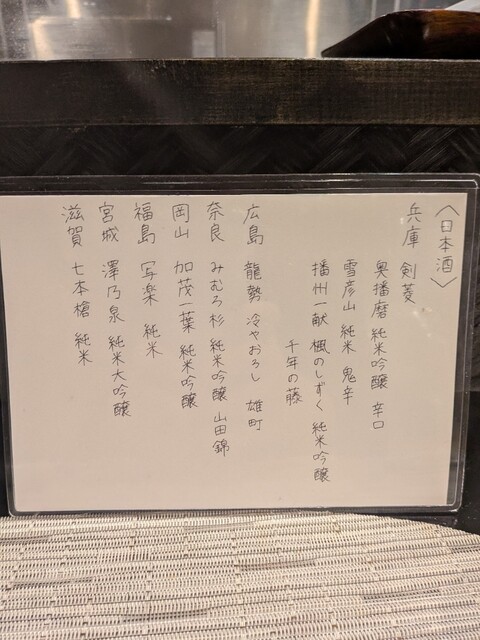 〈日本酒〉
兵庫 剣菱
奥播磨 純米吟醸 辛口
雪彦山 純米 鬼辛
播州一献 楓のしずく 純米吟醸
千年の藤
広島 龍勢 冷やおろし 雄町
奈良 みむろ杉 純米吟醸 山田錦
岡山 加茂一葉 純米吟醸
福島 写楽 純米
宮城 澤乃泉 純米大吟醸
滋賀 七本槍 純米